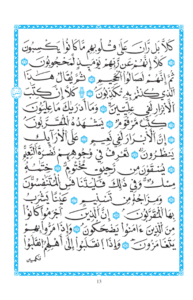 كَلَّا بَلْ رَانَ عَلَىٰ قُلُوبِهِم مَّا كَانُوا۟ يَكْسِبُونَ
كَلَّآ إِنَّهُمْ عَن رَّبِّهِمْ يَوْمَئِذٍ لَّمَحْجُوبُونَ
ثُمَّ إِنَّهُمْ لَصَالُوا۟ ٱلْجَحِيمِ ثُمَّ يُقَالُ هَٰذَا
ٱلَّذِى كُنتُم بِهِۦ تُكَذِّبُونَ كَلَّآ إِنَّ كِتَٰبَ
ٱلْأَبْرَارِ لَفِى عِلِّيِّينَ وَمَآ أَدْرَىٰكَ مَا عِلِّيُّونَ
كِتَٰبٌ مَّرْقُومٌ يَشْهَدُهُ ٱلْمُقَرَّبُونَ
إِنَّ ٱلْأَبْرَارَ لَفِى نَعِيمٍ عَلَى ٱلْأَرَآئِكِ
يَنظُرُونَ تَعْرِفُ فِى وُجُوهِهِمْ نَضْرَةَ ٱلنَّعِيمِ
يُسْقَوْنَ مِن رَّحِيقٍ مَّخْتُومٍ خِتَٰمُهُۥ
مِسْكٌ وَفِى ذَٰلِكَ فَلْيَتَنَافَسِ ٱلْمُتَنَٰفِسُونَ
وَمِزَاجُهُۥ مِن تَسْنِيمٍ عَيْنًا يَشْرَبُ
بِهَا ٱلْمُقَرَّبُونَ إِنَّ ٱلَّذِينَ أَجْرَمُوا۟ كَانُوا۟
مِنَ ٱلَّذِينَ ءَامَنُوا۟ يَضْحَكُونَ وَإِذَا مَرُّوا۟ بِهِمْ
يَتَغَامَزُونَ وَإِذَا ٱنقَلَبُوٓا۟ إِلَىٰٓ أَهْلِهِمُ ٱنقَلَبُوا۟
فَكِهِينَ